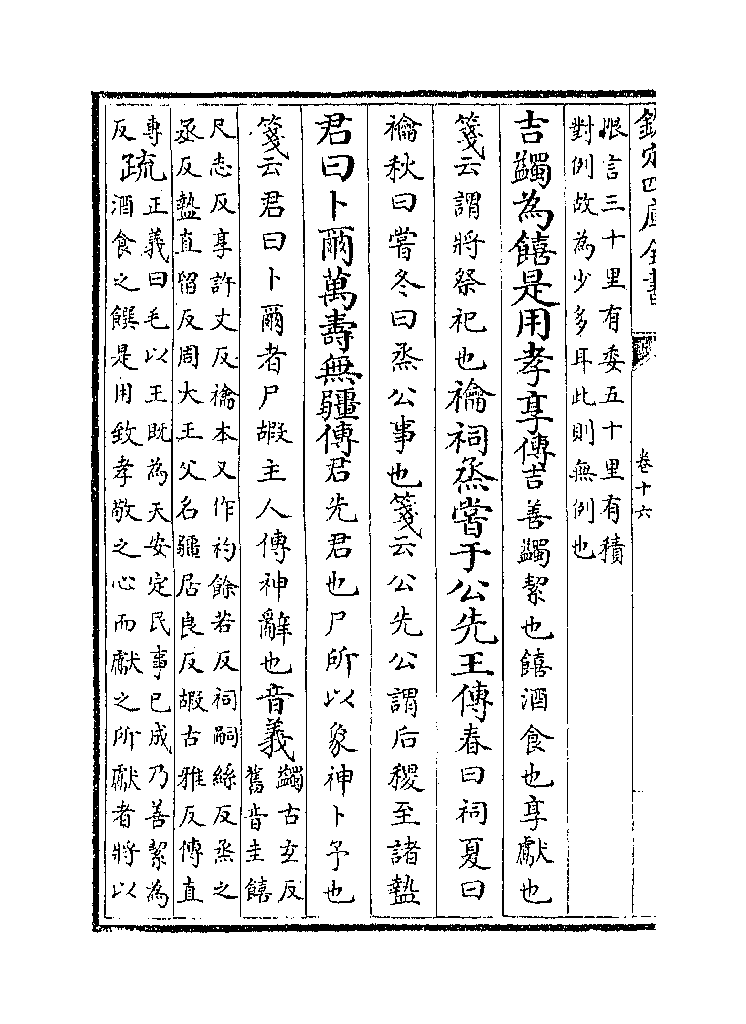 欽定四庫全書
卷十六
恨言三十里有委五十里有積
對例故為少多耳此則無例也
吉蠲為饎是用孝享傳吉善蠲絜也饎酒食也享獻也
箋云謂將祭祀也禴祠烝嘗于公先王傳春曰祠夏曰
禴秋曰嘗冬曰烝公事也箋云公先公謂后稷至諸盩
君曰卜爾萬壽無疆傳君先君也尸所以象神卜予也
箋云君曰卜爾者尸嘏主人傳神辭也音義蠲古𤣥反
舊音圭饎
尺志反享許丈反禴本又作礿餘若反祠嗣絲反烝之
丞反盩直留反周大王父名疆居良反嘏古雅反傳直
專反疏正義曰毛以王既為天安定民事已成乃善絜為
酒食之饌是用致孝敬之心而獻之所獻者將以